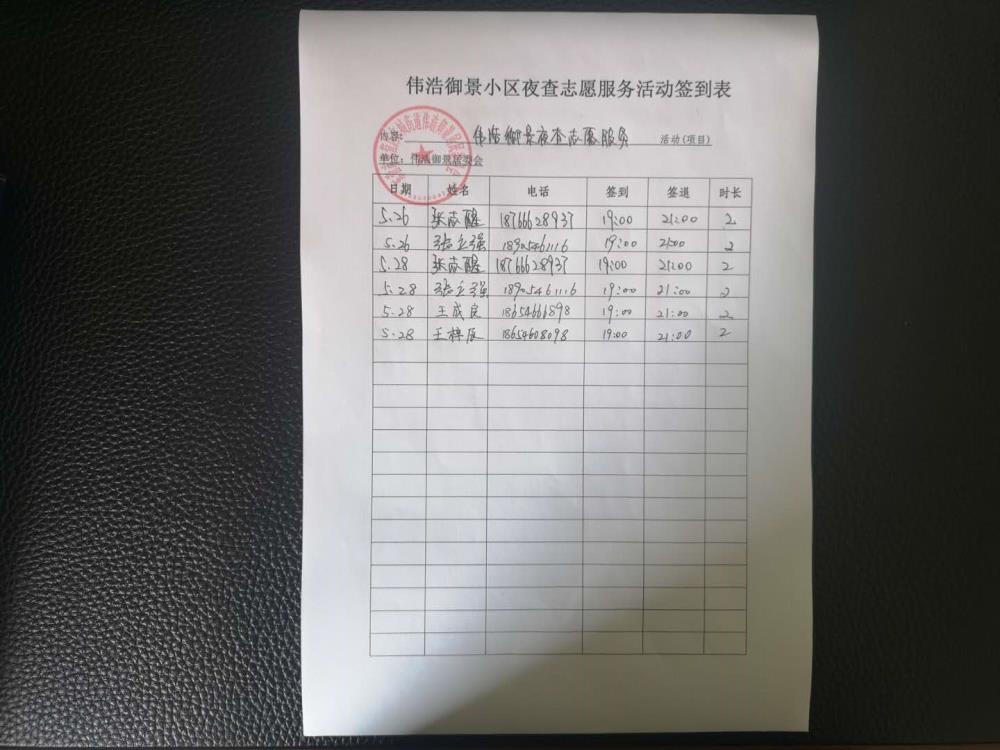 伟浩御景小区夜查志愿服务活动签到表
内容: 伟浩御景夜查志愿服务 活动(项目)
单位: 伟浩御景居委会
日期 姓名 电话 签到 签退 时长
5.26 张志醒 18766628937 19:00 21:00 2
5.26 张立强 18905461116 19:00 21:00 2
5.28 张志醒 18766628937 19:00 21:00 2
5.28 张立强 18905461116 19:00 21:00 2
5.28 王成良 18654661898 19:00 21:00 2
5.28 王梓辰 18654608098 19:00 21:00 2